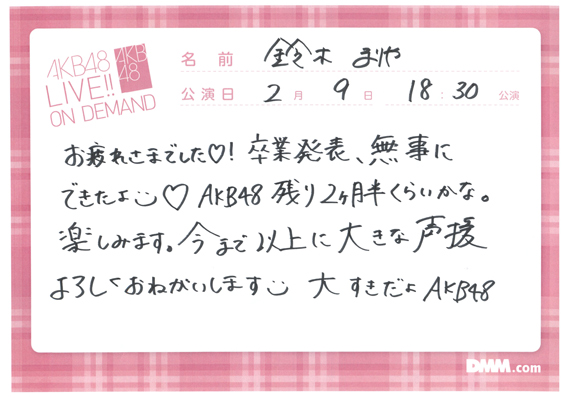 AKB48
LIVE!!
ON DEMAND
AKB
48
名前 鈴木まりや
公演日 2月9日 18:30公演
お疲れさまでした♡! 卒業発表、無事に
できたよ♡ AKB48 残り2ヶ月半くらいかな。
楽しみます。今まで以上に大きな声援
よろしくおねがいします 大すきだよAKB48
DMM.com